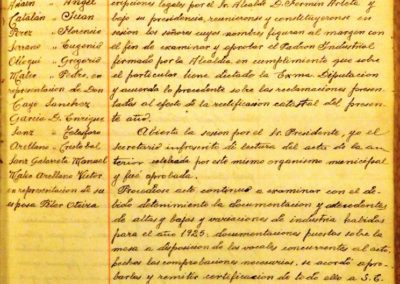 Juan " Angel
Catalán " Juan
Perez " Florencio
Serrano " Eugenio
Gregorio
Mateo " Pedro, en
representación de Don
Cayo Sanchez
Garcia D. Enrique
Sanz "
Arellano " Cristobal
Sanz Galarreta Manuel
Malo Arellano Victor
en representacion de su
esposa Pilar
cripciones legales por el Sr. Alcalde D. Fermin
bajo su presidencia, reunieronse y constituyeronse en
sesión los señores cuyos nombres figuran al margen con
el fin de examinar y aportar el Padron Industrial
firmado por la Alcaldia, en cumplimiento que sobre
el particular tiene dictado la Exma. Diputacion
y acuerdo lo procedente sobre las reclamaciones presen-
tadas al efecto de la rectificacion catastral del presen-
te año.
Abierta la sesión por el Sr. Presidente, yo el
secretario infrascrito di lectura del acta de la an-
terior celebrada por este mismo organismo municipal
y fué aprobada.
Procediose acto continuo a examinar con el de-
bido detenimiento la documentacion y antecedentes
de altas y bajas y variaciones de industria habidas
para el año 1925, documentaciones puestas sobre la
mesa a disposicion de los vocales concurrentes al acto
hechas las comprobaciones necesarias, se acordó apro-
barlas y remitir certificacion de todo ello a S.E.